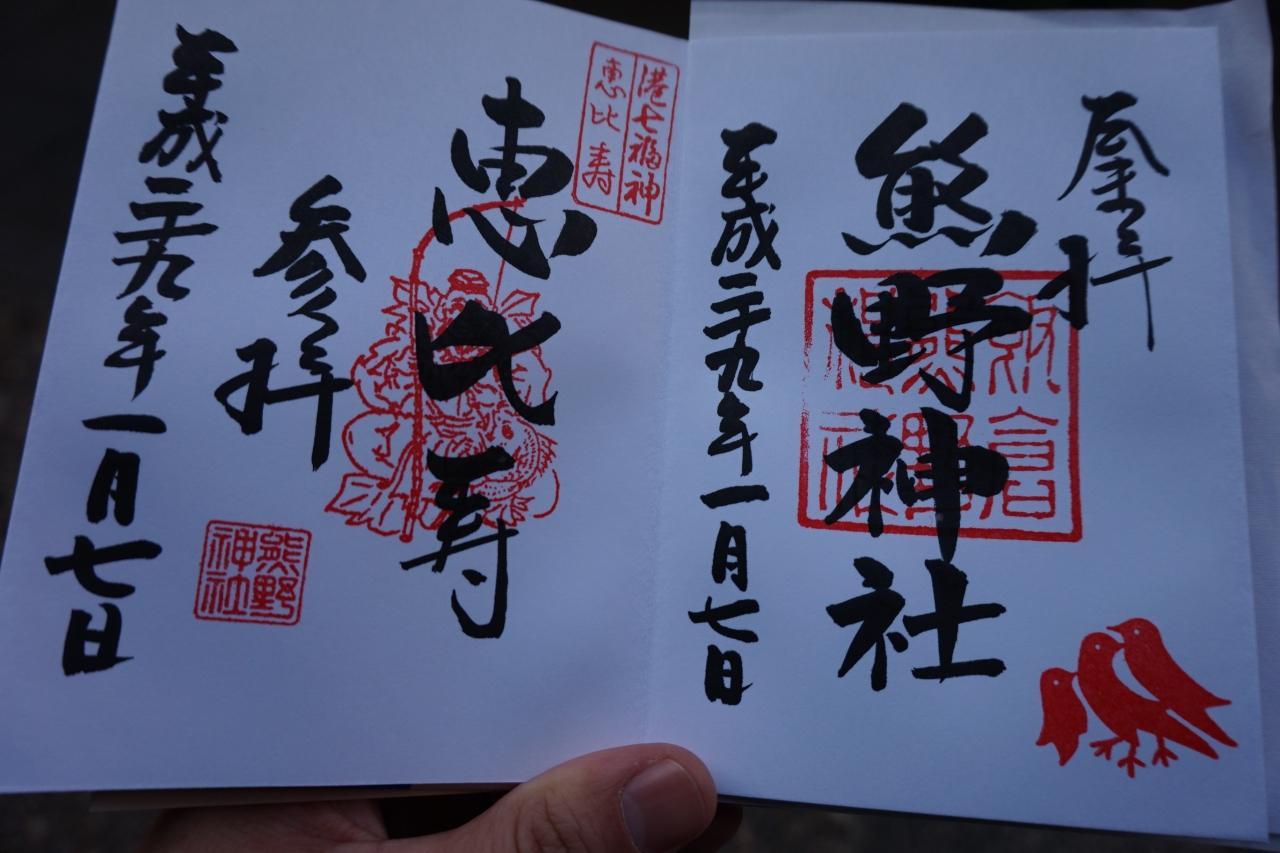 奉拝
熊野神社
飯倉
熊野
神社
平成二十九年一月七日
港七福神
恵比寿
恵比寿
参拝
平成二十九年一月七日
熊野
神社